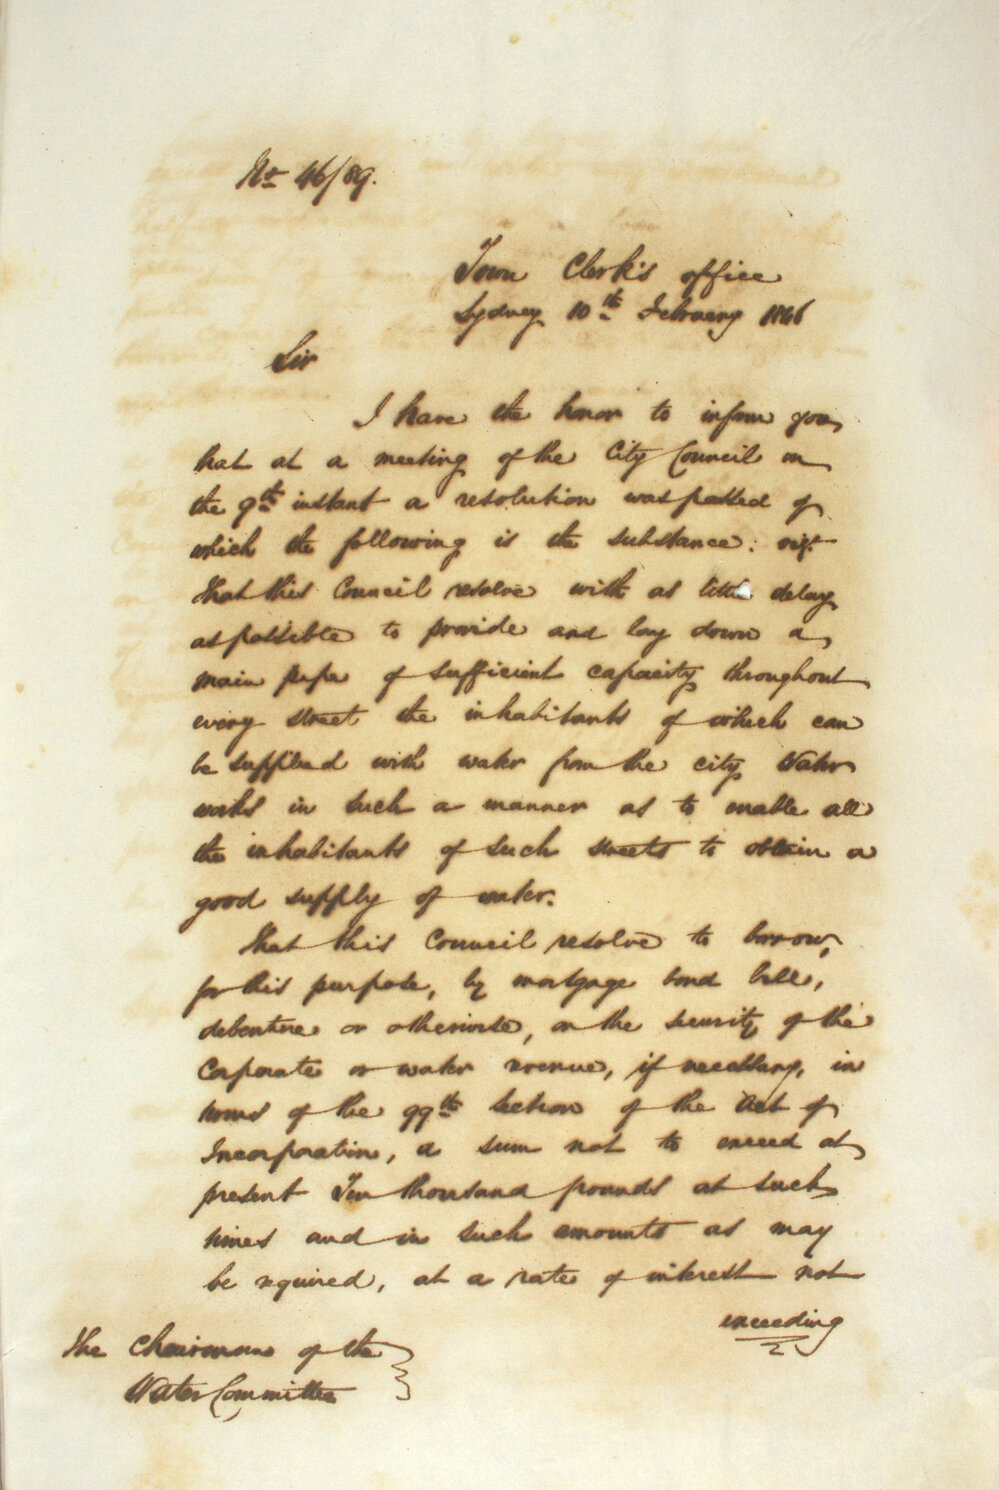 No 46/89.
Town Clerk's office
Sydney 10th February 1846
Sir
I have the honor to inform you
that at a meeting of the City Council on
the 9th instant a resolution was passed of
which the following is the substance: viz:
That this Council resolve with as little delay
as possible to provide and lay down a
main pipe of sufficient capacity throughout
every street the inhabitants of which can
be supplied with water from the city Water
works in such a manner as to enable all
the inhabitants of such streets to obtain a
good supply of water.
That this Council resolve to borrow,
for this purpose, by mortgage bond bill,
debenture or otherwise, on the security of the
Corporate or water revenue, if necessary, in
terms of the 99th section of the Act of
Incorporation, a sum not to exceed at
present Ten thousand pounds at such
times and in such amounts as may
be required, at a rate of interest not
exceeding
The Chairman of the
Water Committee